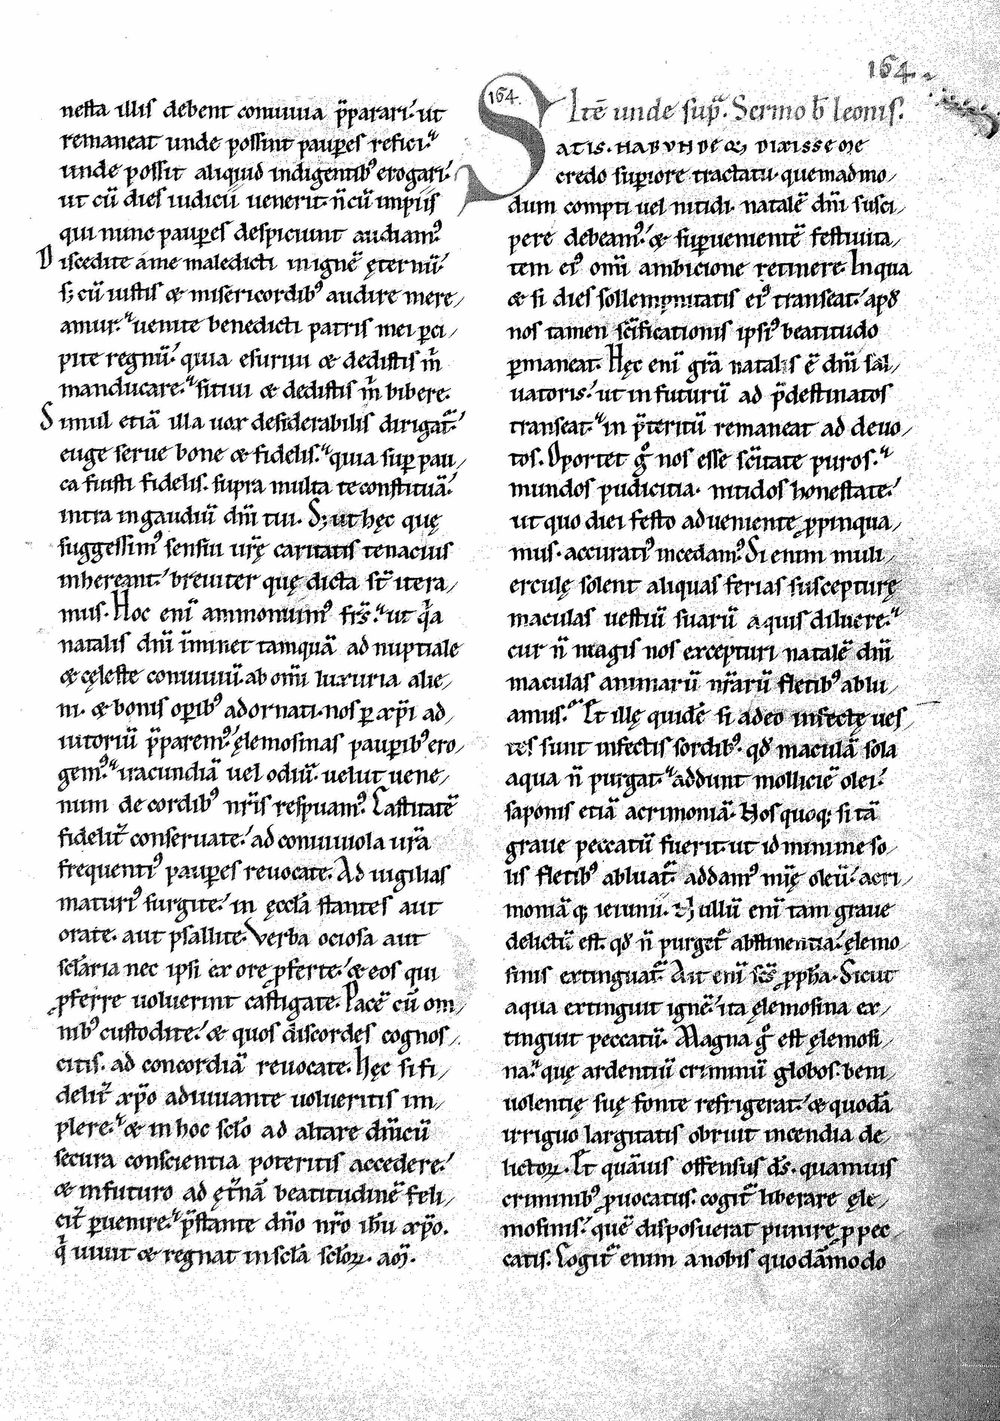 164.
nesta illis debent conuiuia p̄parari. ut
remaneat unde possint paup̲es refici.
unde possit aliquid indigentib; erogari.
ut cū dies iudicii uenerit. n̄ cū impiis
qui nunc paup̲es despiciunt audiam᷒.
Discedite a me maledicti in ignē ęternū.
s; cū iustis & misericordib᷒ audire mere/
amur. uenite benedicti patris mei p̲ci/
pite regnū. quia esuriui & dedistis m̄
manducare. sitiui & dedistis m̄ bibere.
Simul etiā illa uox desiderabilis dirigat᷑.
euge serue bone & fidelis. quia sup̲ pau/
ca fuisti fidelis. supra multa te constituā.
intra in gaudiū dn̄i tui. S; ut hęc quę
suggessim᷒ sensui urę̄ caritatis tenacius
inhereant. breuiter quę dicta st̄ itera/
mus. Hoc eni̅ ammonuim᷒ frs̄. ut qͥa
natalis dn̄i īminet tamquā ad nuptiale
& cęleste conuiuiū. ab omi̅ luxuria alie/
ni. & bonis op̲ib᷒ adornati. nos p̲ xp̄i ad/
iutoriū p̄parem᷒. ęlemosinas paup̲ib᷒ ero/
gem᷒. iracundiā uel odiū. uelut uene/
num de cordib᷒ nr̄is respuam᷒. Castitatē
fidelit᷑ conseruate. ad conuiuiola ur̄a
frequenti᷒ paup̲es reuocate. Ad uigilias
maturi᷒ surgite. in ęccl̄a stantes aut
orate. aut psallite. Verba ociosa aut
scl̄aria nec ipsi ex ore p̲ferte. & eos qui
p̲ferre uoluerint castigate. Pacē cū om/
nib᷒ custodite. & quos discordes cognos/
citis. ad concordiā reuocate. Hęc si fi/
delit᷑ xp̄o adiuuante uolueritis im/
plere. & in hoc scl̄o ad altare dn̄icū
secura conscientia poteritis accedere.
& in futuro ad ęt̄nā beatitudinē feli/
cit᷑ p̲uenire. p̄stante dn̄o nr̄o ih̄u xp̄o.
qͥ uiuit & regnat in scl̄a scl̄oꝝ. am̄.
164.
Itē unde supᷓ. Sermo b̄ leonis.
SATIS. HABUNDE Q; DIXISSE ME
credo sup̲iore tractatu. quemadmo/
dum compti uel nitidi. natalē dn̄i susci/
pere debeam᷒. & sup̲uenientē festiuita/
tem ei᷒ omi̅ ambicione retinere. Inqua
& si dies sollempnitatis ei᷒ transeat. apd̄
nos tamen sc̄ificationis ipsi᷒ beatitudo
p̲maneat. Hęc eni̅ gr̄a natalis ē dn̄i sal/
uatoris. ut in futurū ad p̄destinatos
transeat. in p̄teritū remaneat ad deuo/
tos. Oportet gͦ nos esse sc̄itate puros.
mundos pudicitia. nitidos honestate.
ut quo diei festo adueniente p̲pinqua/
mus. accurati᷒ incedam᷒. Si enim muli/
erculę solent aliquas ferias suscepturę
maculas uestiū suarū aquis diluere.
cur n̄ magis nos excepturi natalē dn̄i
maculas animarū nr̄arū fletib᷒ ablu/
amus. Et illę quidē si adeo infectę ues/
tes sunt infectis sordib᷒. qd̄ maculā sola
aqua n̄ purgat. addunt molliciē olei.
saponis etiā acrimoniā. Nos quoq; si tā
graue peccatū fuerit. ut id minime so/
lis fletib᷒ abluat᷑. addam᷒ mi̅ę oleū. acri/
moniā q; ieiunii. Nullū eni̅ tam graue
delictū est. qd̄ n̄ purget᷑ abstinentia. ęlemo/
sinis extinguat᷑. Ait eni̅ sc̄s p̲ph̄a. Sicut
aqua extinguit ignē. ita ęlemosina ex/
tinguit peccatū. Magna gͦ est ęlemosi/
na. quę ardentiū criminū globos. beni/
uolentię suę fonte refrigerat. & quodā
irriguo largitatis obruit incendia de/
lictoꝝ. Et quāuis offensus d̄s. quamuis
criminib᷒ p̲uocatus. cogit᷑ liberare ęle/
mosinis. quē disposuerat punire p̲ pec/
catis. Cogit᷑ enim a nobis quodāmodo